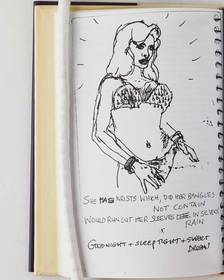 SHE HAS WRISTS WHICH, DID HER BANGLES
NOT CONTAIN
WOULD RUN OUT HER SLEEVES IN SILVER
RAIN
X
GOODNIGHT + SLEEP TIGHT + SWEET
DREAMS